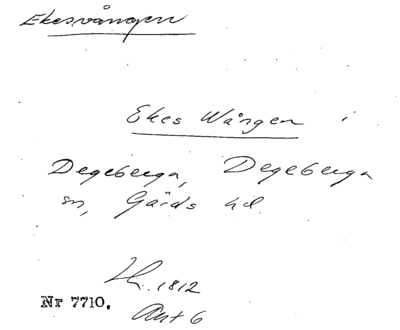 Ekesvången
Ekes Wången i
Degeberga, Degeberga
sn, Gärds hd.
1812
Nr 7710.
Akt 6